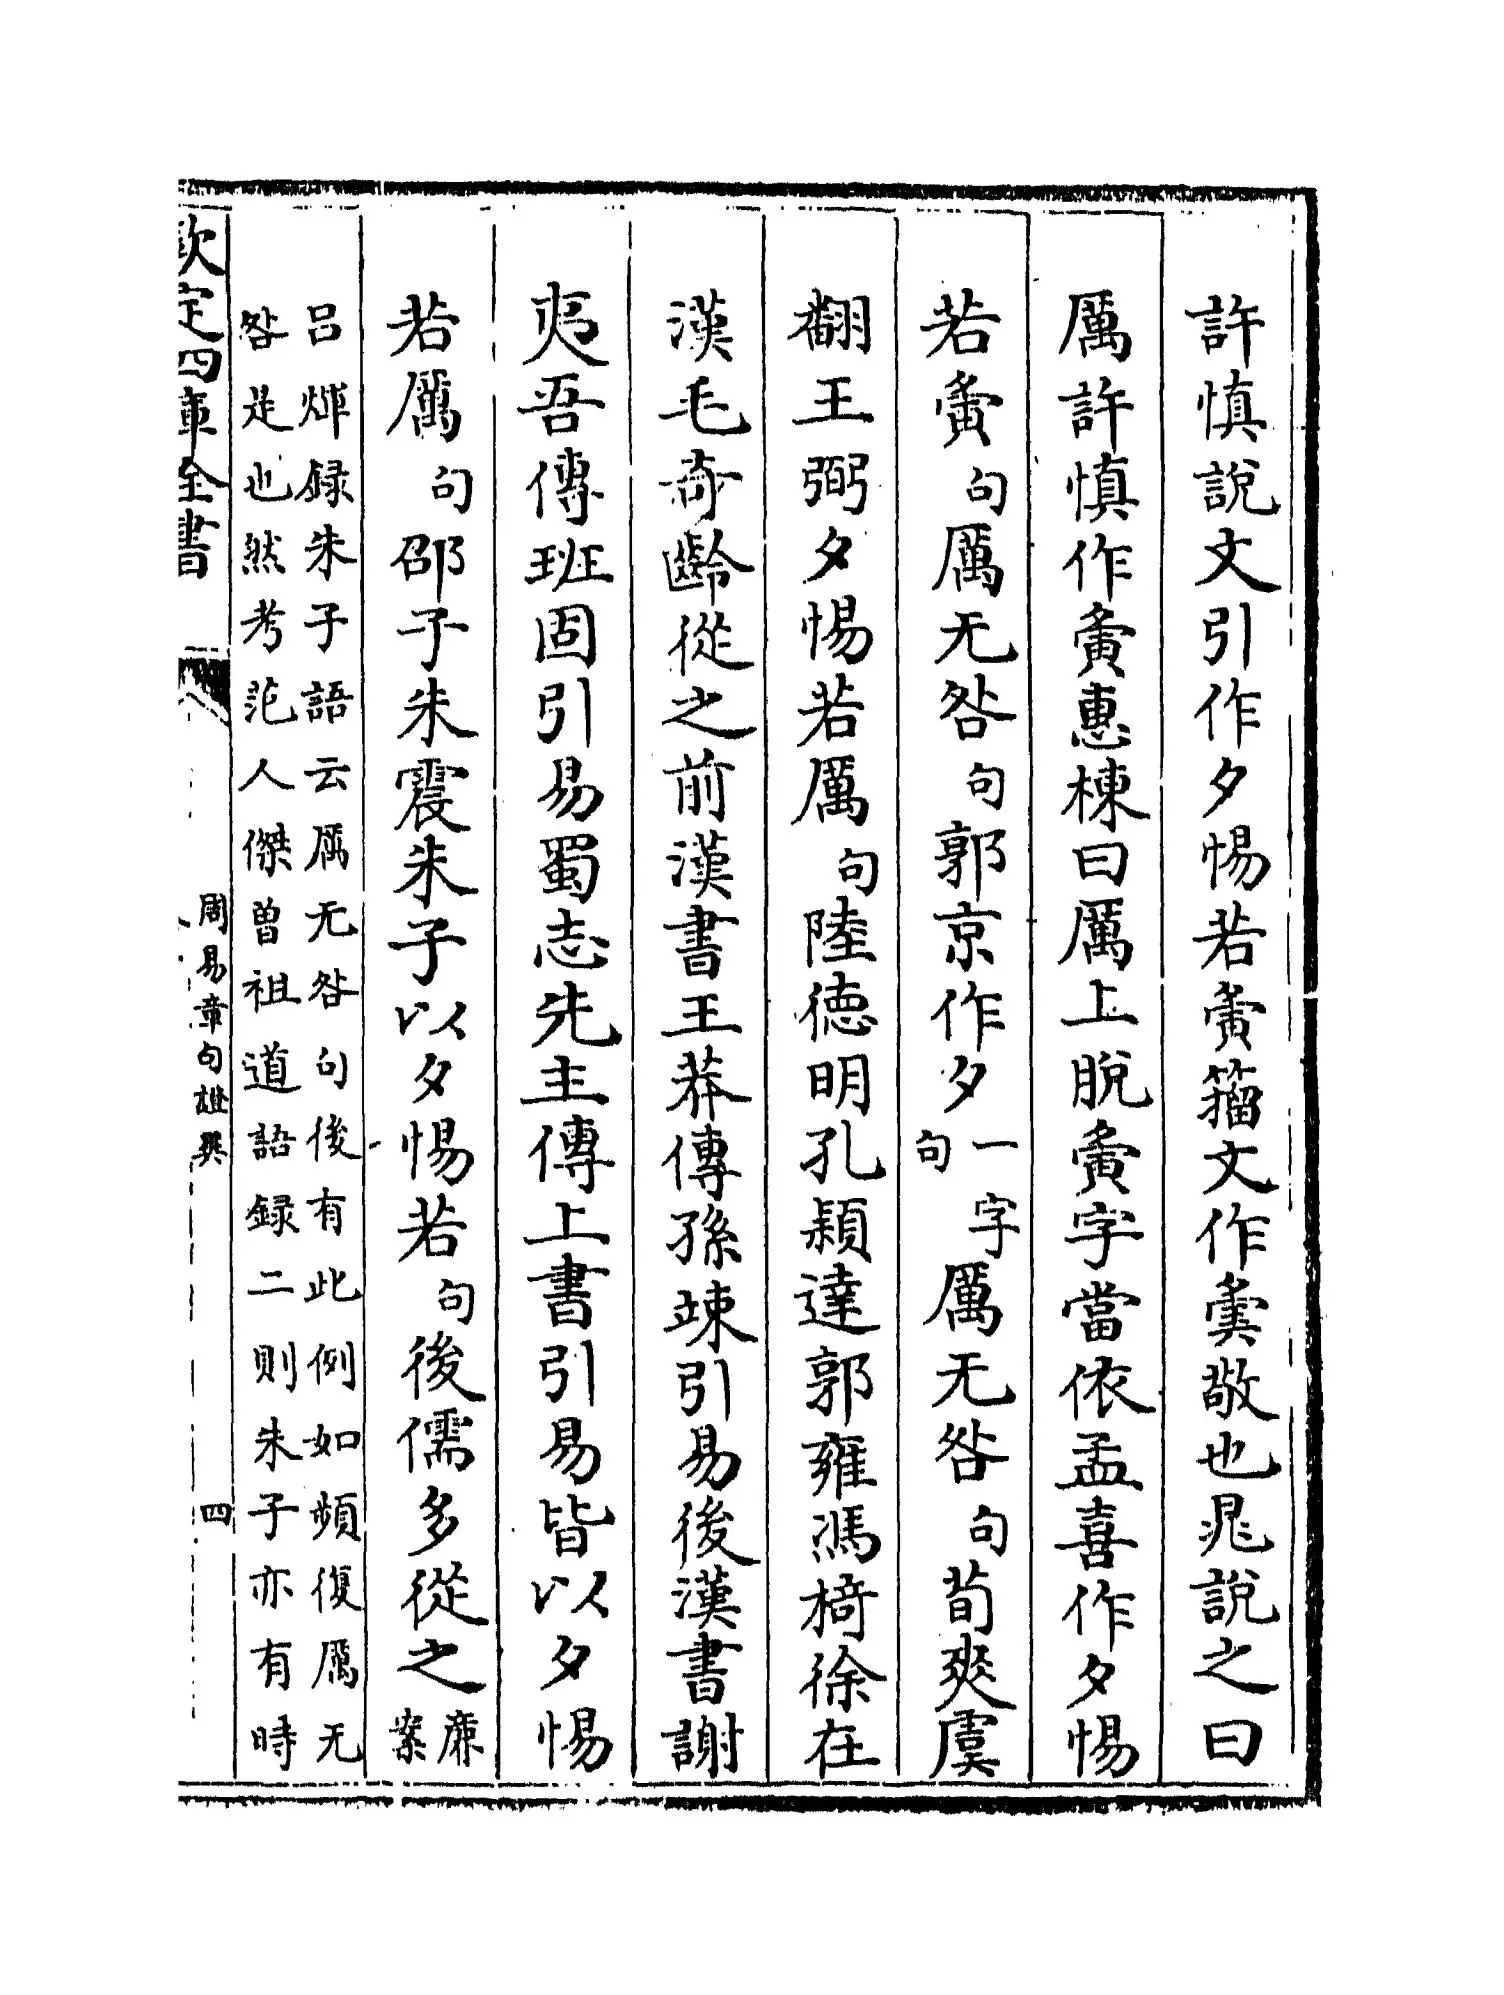 許慎說文引作夕惕若夤籀文作𡖐敬也晁說之曰
厲許慎作夤惠棟曰厲上脫夤字當依孟喜作夕惕
若夤句厲无咎句郭京作夕一字句厲无咎句荀爽虞
翻王弼夕惕若厲句陸德明孔穎達郭雍馮椅徐在
漢毛奇齡從之前漢書王莽傳孫竦引易後漢書謝
夷吾傳班固引易蜀志先主傳上書引易皆以夕惕
若厲句邵子朱震朱子以夕惕若句後儒多從之廉案
呂煇録朱子語云厲无咎句後有此例如頻復厲无
咎是也然考范人傑曾祖道語録二則朱子亦有時
欽定四庫全書
周易章句證異
四